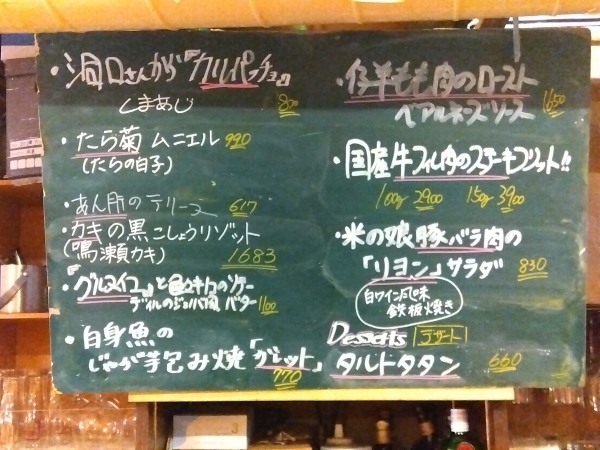 ・洞口さんから『カルパッチョ』
しまあじ 800
・たら菊 ムニエル 990
(たらの白子)
・あん肝のテリーヌ 617
・カキの黒こしょうリゾット
(鳴瀬カキ) 1683
・『グルヌイユ』と のソテー
ディルのジェノバ風 バター 1100
・白身魚の
じゃが芋包み焼「ガレット」
770
・仔羊もも肉のロースト
ベアルネーズソース 1650
・国産牛フィレ肉のステーキフリット!!
100g 2900 150g 3900
・米の娘豚バラ肉の
「リヨン」サラダ 830
白ワイン風味
鉄板焼き
Desserts デザート
タルトタタン 660